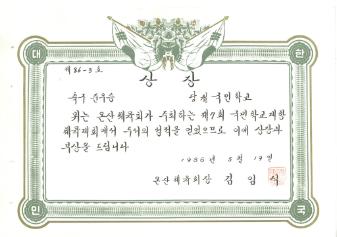 대 한
제 86-3 호
상 장
축구 준우승 국민학교
위는 온산체육회가 주최하는 제7회 국민학교대항
체육대회에서 두서의 성적을 얻었으므로 이에 상장과
부상을 드립니다
1986년 5월 19일
온산체육회장 김 임 식
민 국